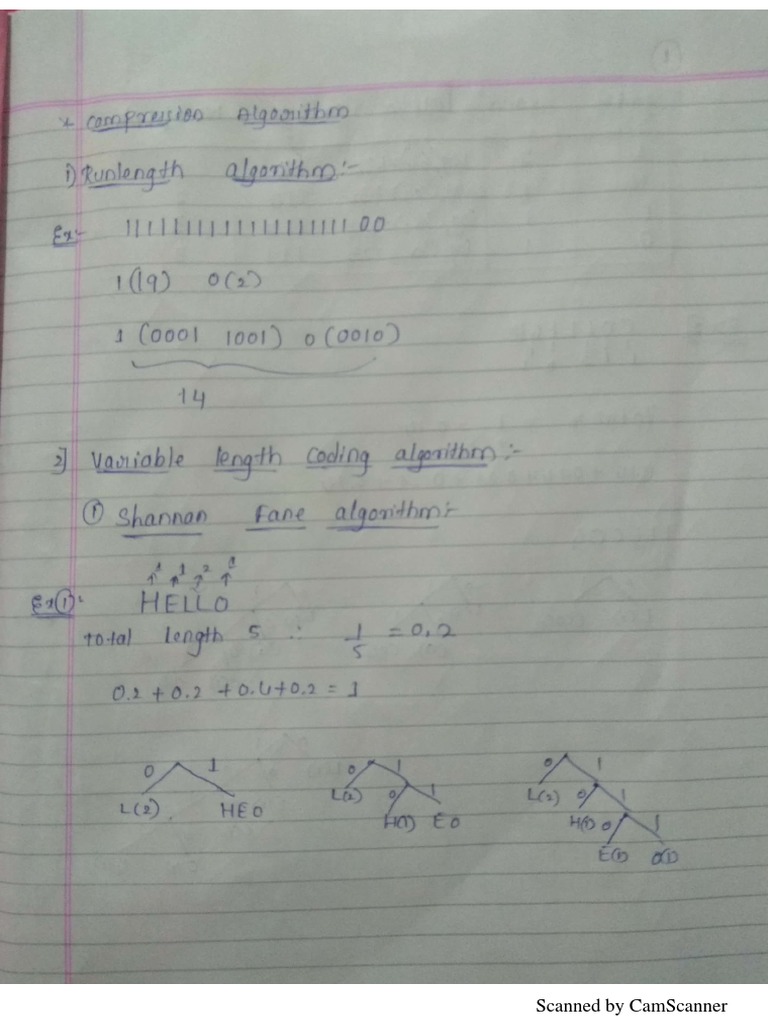 1
* Compression Algorithm
i) Runlength algorithm:-
Ex:- 111111111111111111100
1(19) 0(2)
1 (0001 1001) 0 (0010)
14
2] Variable length coding algorithm:-
① Shannon Fane algorithm:-
1 1 2 1
Ex①: HELLO
total length 5 ∴ 1/5 = 0.2
0.2 + 0.2 + 0.4 + 0.2 = 1
0 1 0 1 0 1
L(2) HEO L(2) 0 1 L(2) 0 1
H(1) EO H(1) 0 1
E(1) O(1)
Scanned by CamScanner